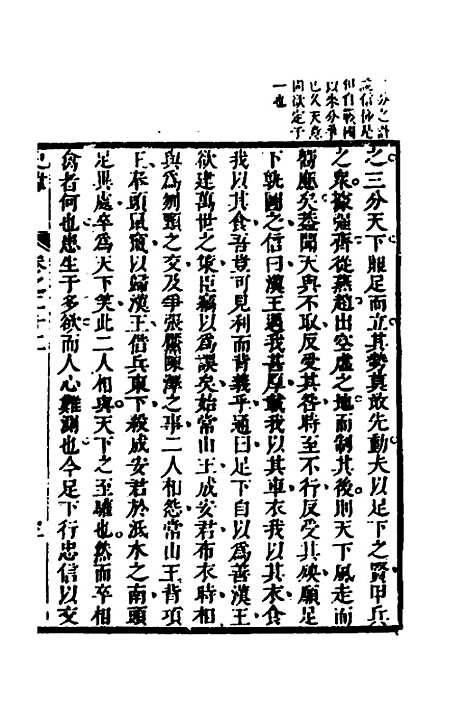 分之計
信
但自戰國
以來分爭
已久天意
固欲定于
一也
之三分天下鼎足而立其勢莫敢先動夫以足下之賢甲兵
之衆據彊齊從燕趙出空虛之地而制其後則天下風走而
響應矣蓋聞天與不取反受其咎時至不行反受其殃願足
下孰圖之信曰漢王遇我甚厚載我以其車衣我以其衣食
我以其食吾豈可見利而背義乎通曰足下自以爲善漢王
欲建萬世之業臣竊以爲誤矣始常山王成安君布衣時相
與爲刎頸之交及爭張黶陳澤之事二人相怨常山王背項
王奉頭鼠竄以歸漢王借兵東下殺成安君於泜水之南頭
足異處卒爲天下笑此二人相與天下之至驩也然而卒相
禽者何也患生于多欲而人心難測也今足下行忠信以交